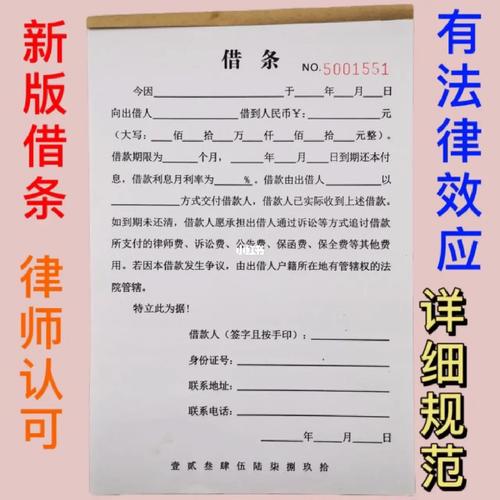 新版借条 律师认可
有法律效应
详细规范
借条
NO.5001551
今因____________________于____年____月____日
向出借人____________借到人民币¥:____________元
(大写:____佰____拾____万____仟____佰____拾____元整)。
借款期限为______个月,______年____月____日到期还本付
息,借款利息月利率为______%。借款由出借人________以
________方式交付借款人,借款人已实际收到上述借款。
如到期未还清,借款人愿承担出借人通过诉讼等方式追讨借款
所支付的律师费、诉讼费、公告费、保函费、保全费等其他费
用。若因本借款发生争议,由出借人户籍所在地有管辖权的法
院管辖。
小红书
特立此为据!
借款人(签字且按手印):____________
身份证号:____________
联系地址:____________
联系电话:____________
______年____月____日
壹贰叁肆伍陆柒捌玖拾